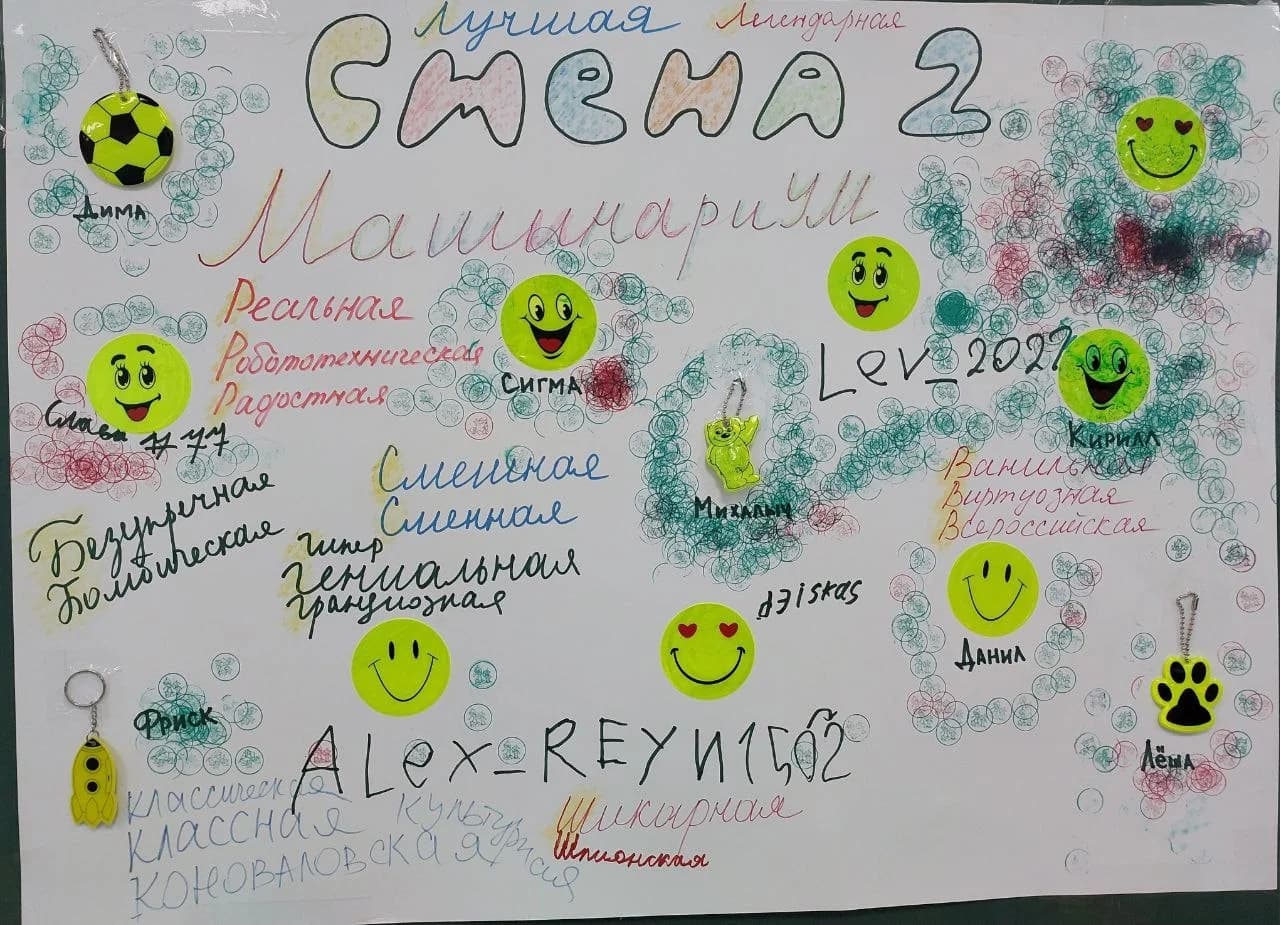 Лучшая Легендарная
Смена 2
Дима
Машынариум
Реальная
Робототехническая
Радостная
Сигма
Lev_2022
Слава #77
Кирилл
Михалыч
Ванильная
Виртуозная
Всероссийская
Смешная
Сменная
Безупречная
Бомбическая
гипер
гениальная
грандиозная
Данил
Фриск
Alex_REYN1502
Лёша
классическая
классная
культурная
коноваловская
Шикарная
Шпионская